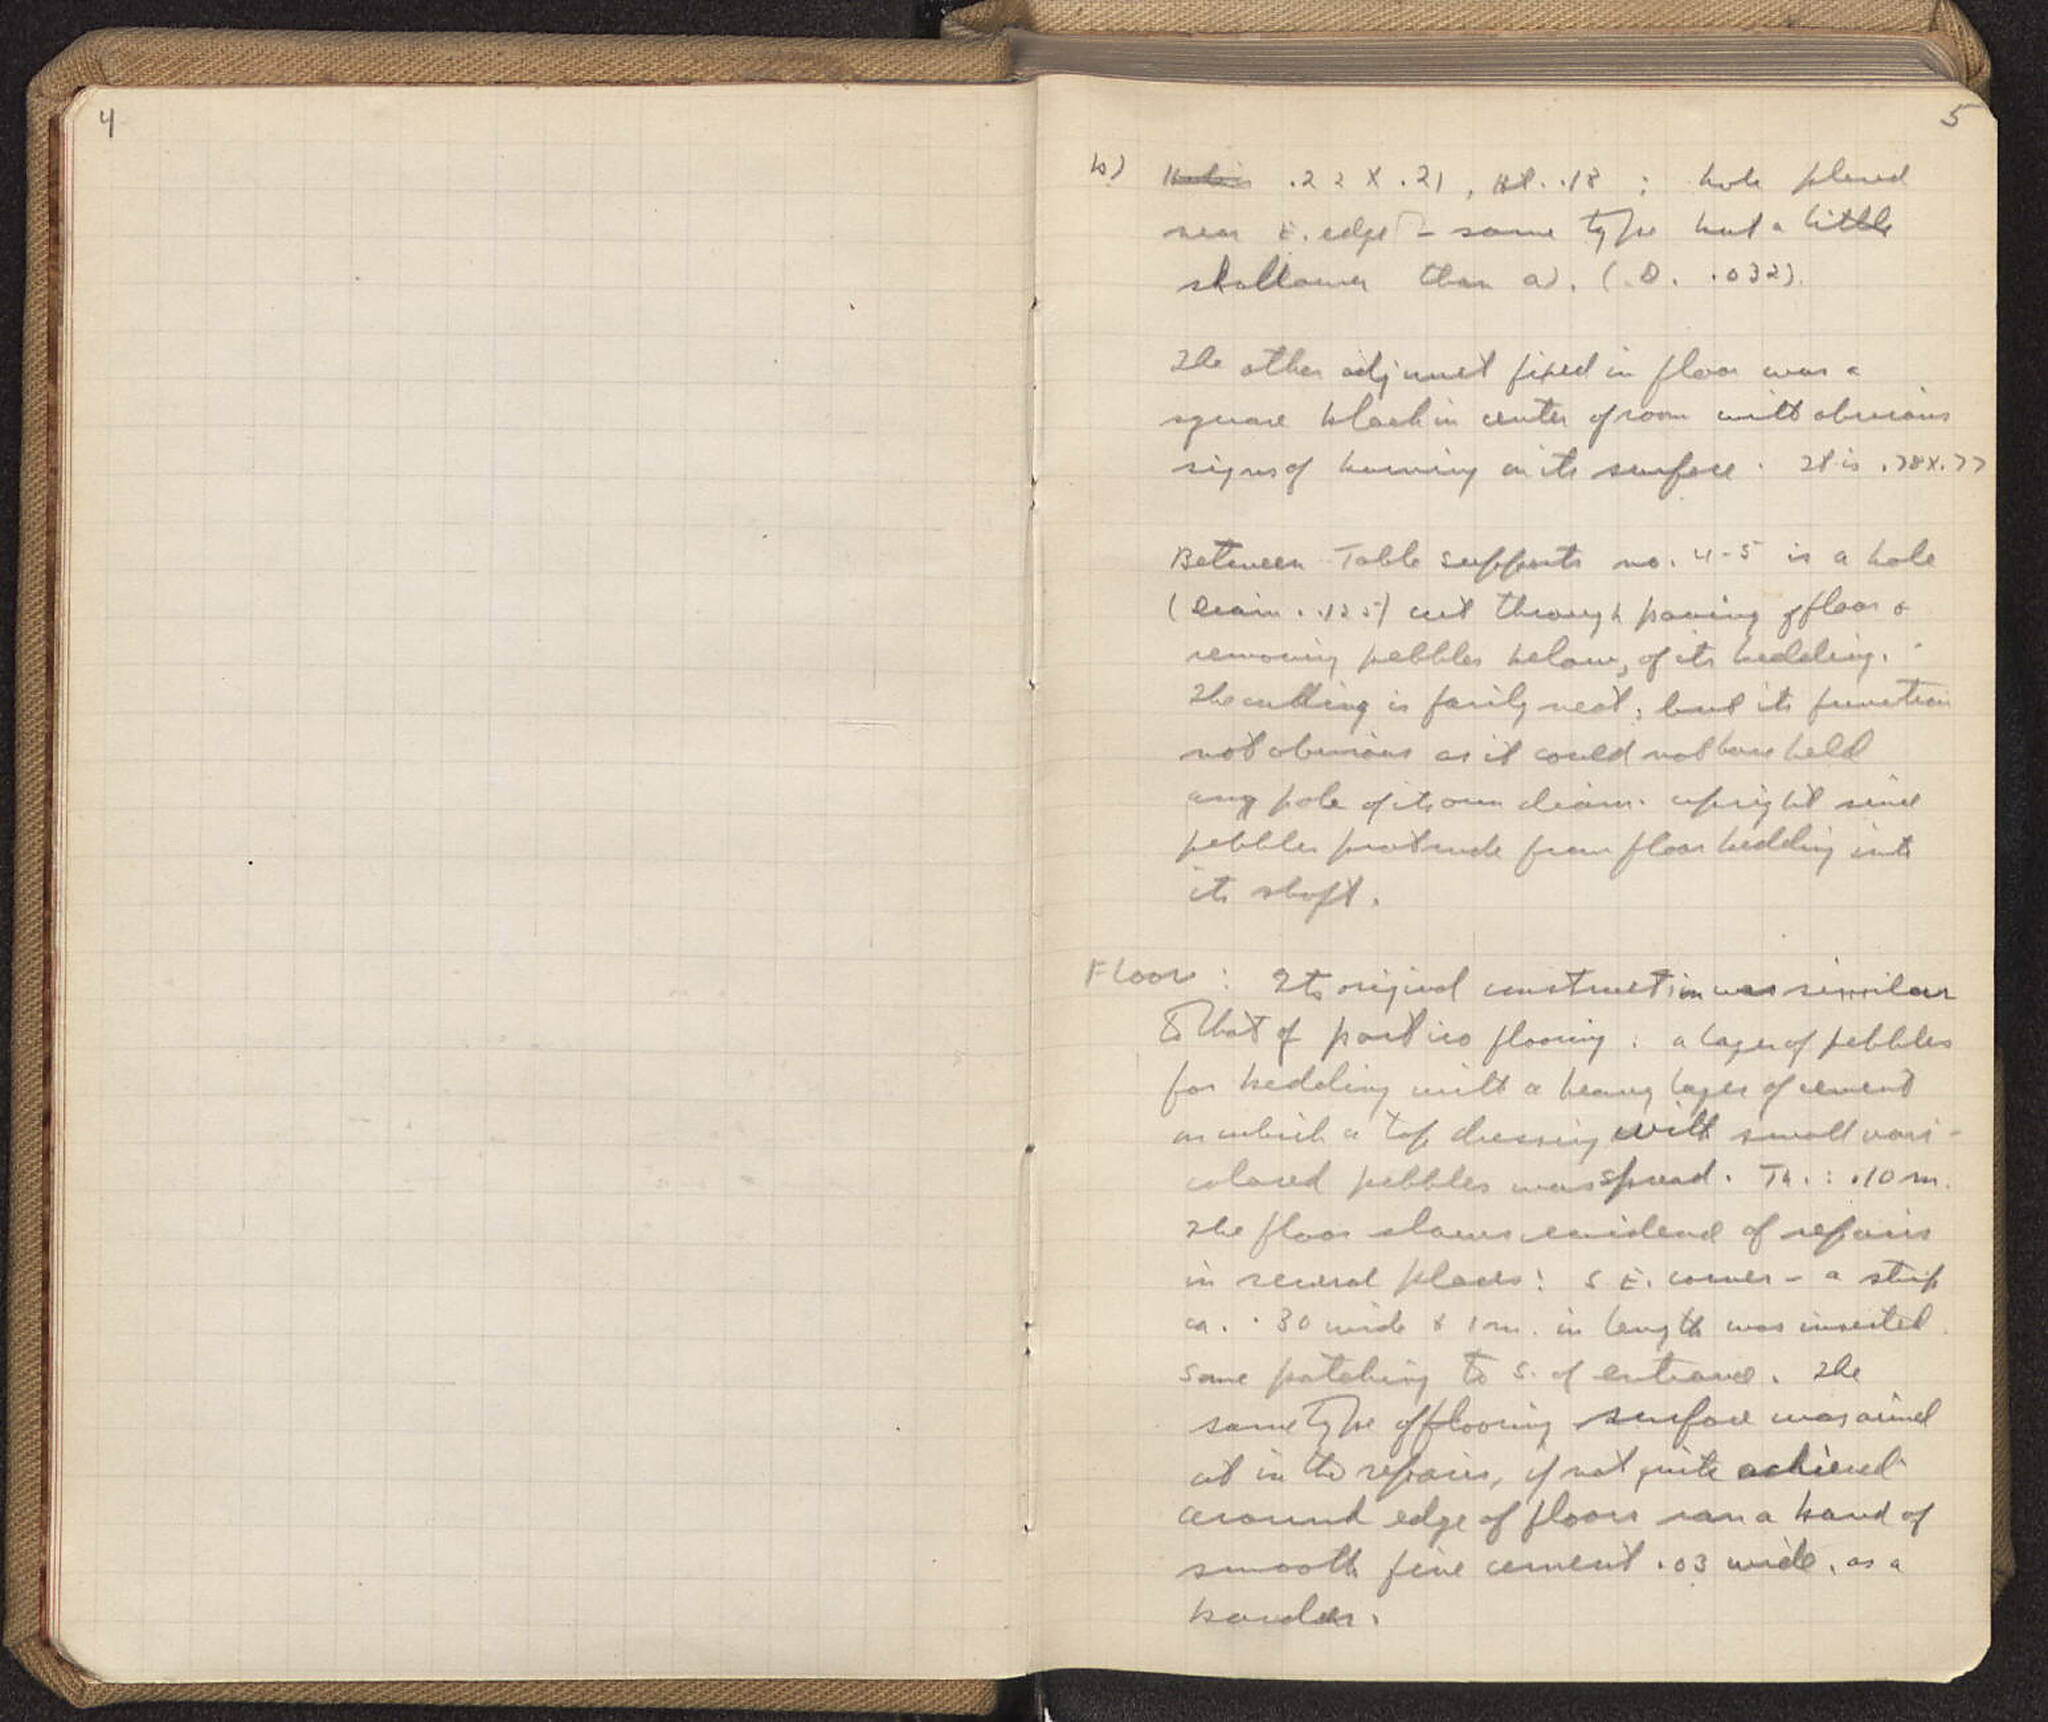 4
5
b) .22 X .21, Ht. .18 ; hole placed
near E. edge - same type but a little
shallower than a). (D. .032).
The other adjunct fixed in floor was a
square block in center of room with obvious
signs of burning on its surface. It is .78 X .77
Between Table supports no. 4-5 is a hole
(Diam. .125) cut through paving of floor &
removing pebbles below, of its bedding.
The cutting is fairly neat, but its function
not obvious as it could not have held
any pole of its own diam. upright since
pebbles protrude from floor bedding into
its shaft.
Floor : Its original construction was similar
to that of portico flooring : a layer of pebbles
for bedding with a heavy layer of cement
on which a top dressing with small vari-
colored pebbles was spread. Th. : .10 m.
The floor shows evidence of repairs
in several places : S E. corner - a strip
ca. .30 wide & 1 m. in length was inserted.
Some patching to S. of entrance. The
same type of flooring surface was aimed
at in the repairs, if not quite achieved.
Around edge of floors ran a band of
smooth fine cement .03 wide, as a
border.